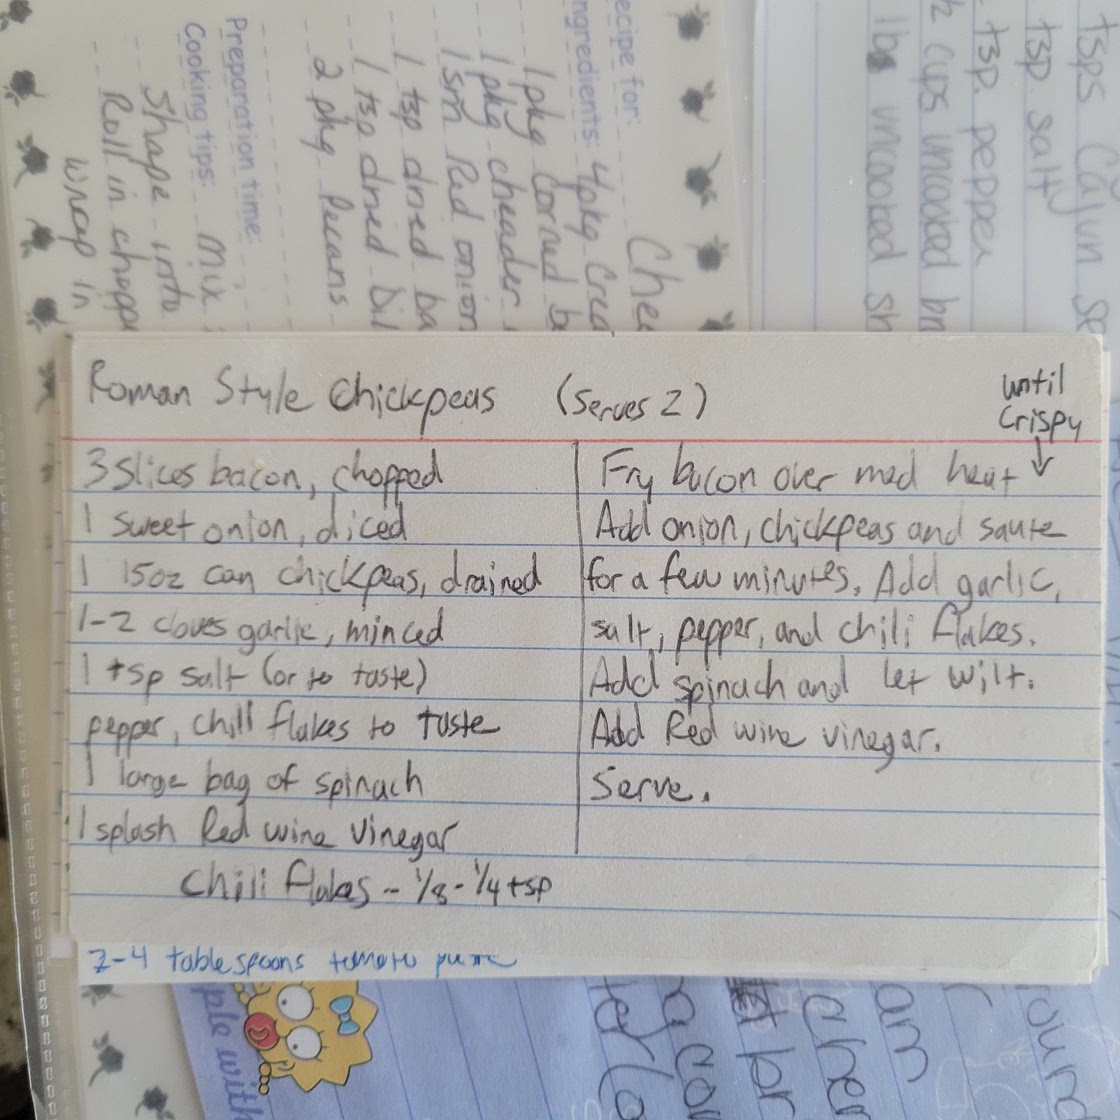 Roman Style Chickpeas (Serves 2)
until
Crispy
3 slices bacon, chopped
1 sweet onion, diced
1 15oz can chickpeas, drained
1-2 cloves garlic, minced
1 tsp salt (or to taste)
pepper, chili flakes to taste
1 large bag of spinach
1 splash Red wine vinegar
Chili flakes - 1/8 - 1/4 tsp
Fry bacon over med heat
Add onion, chickpeas and saute
for a few minutes. Add garlic,
salt, pepper, and chili flakes.
Add spinach and let wilt.
Add Red wine vinegar.
Serve.
2-4 tablespoons tomato
ecipe for: Chee
ngredients: 4 pkg Crea
1 pkg Corned b
1 pkg cheader
1 sm Red onion
1 tsp dried ba
1 tsp dried dil
2 pkg Pecans
Preparation time:
Cooking tips: Mix
Shape into
Roll in chopp
wrap in
tsps Cajun se
tsp salt
tsp. pepper
cups uncooked br
lbs uncooked sh
ple with
a con
br
am
ound